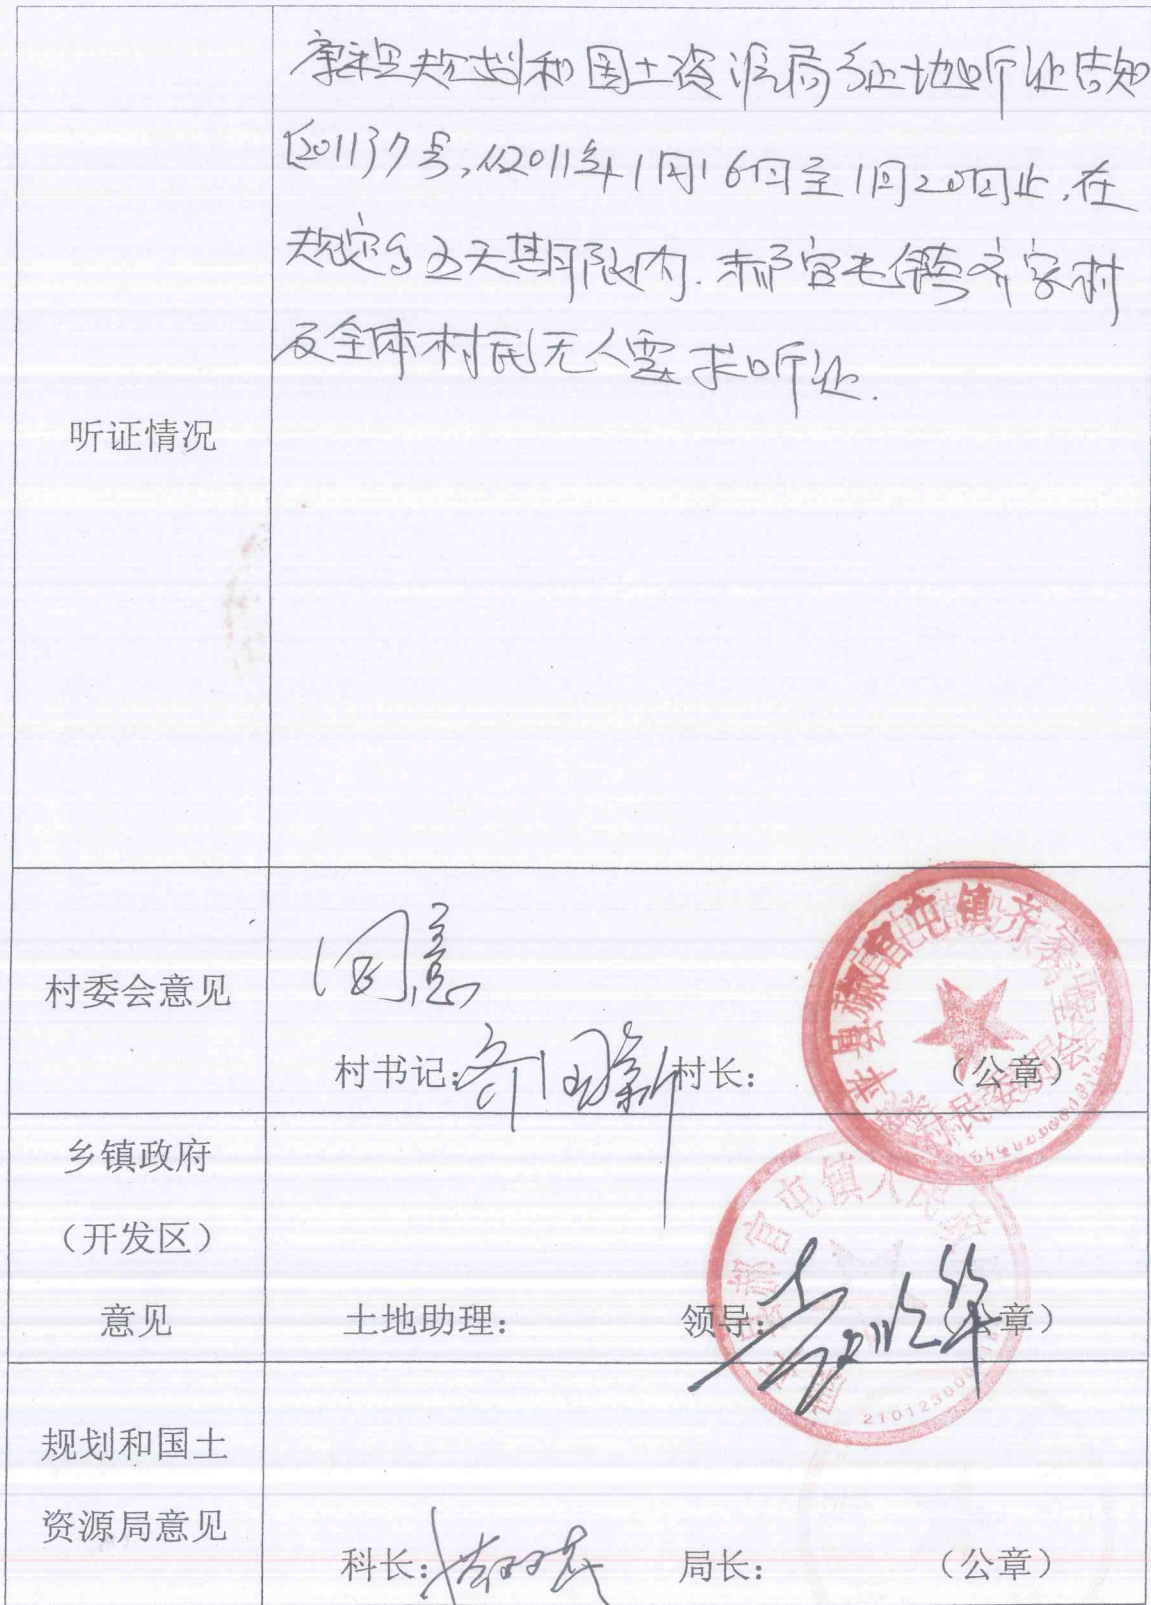 康平县规划和国土资源局征地听证告知
[2011]7号,从2011年1月16日至1月20日止.在
规定的五天期限内.郝官屯镇齐家村
及全体村民无人要求听证.
听证情况
同意
村委会意见
村书记:
村长:
(公章)
郝官屯镇齐家
村民委员会
乡镇政府
(开发区)
意见
土地助理:
领导:
(公章)
郝官屯镇人民政
规划和国土
资源局意见
科长:
局长:
(公章)